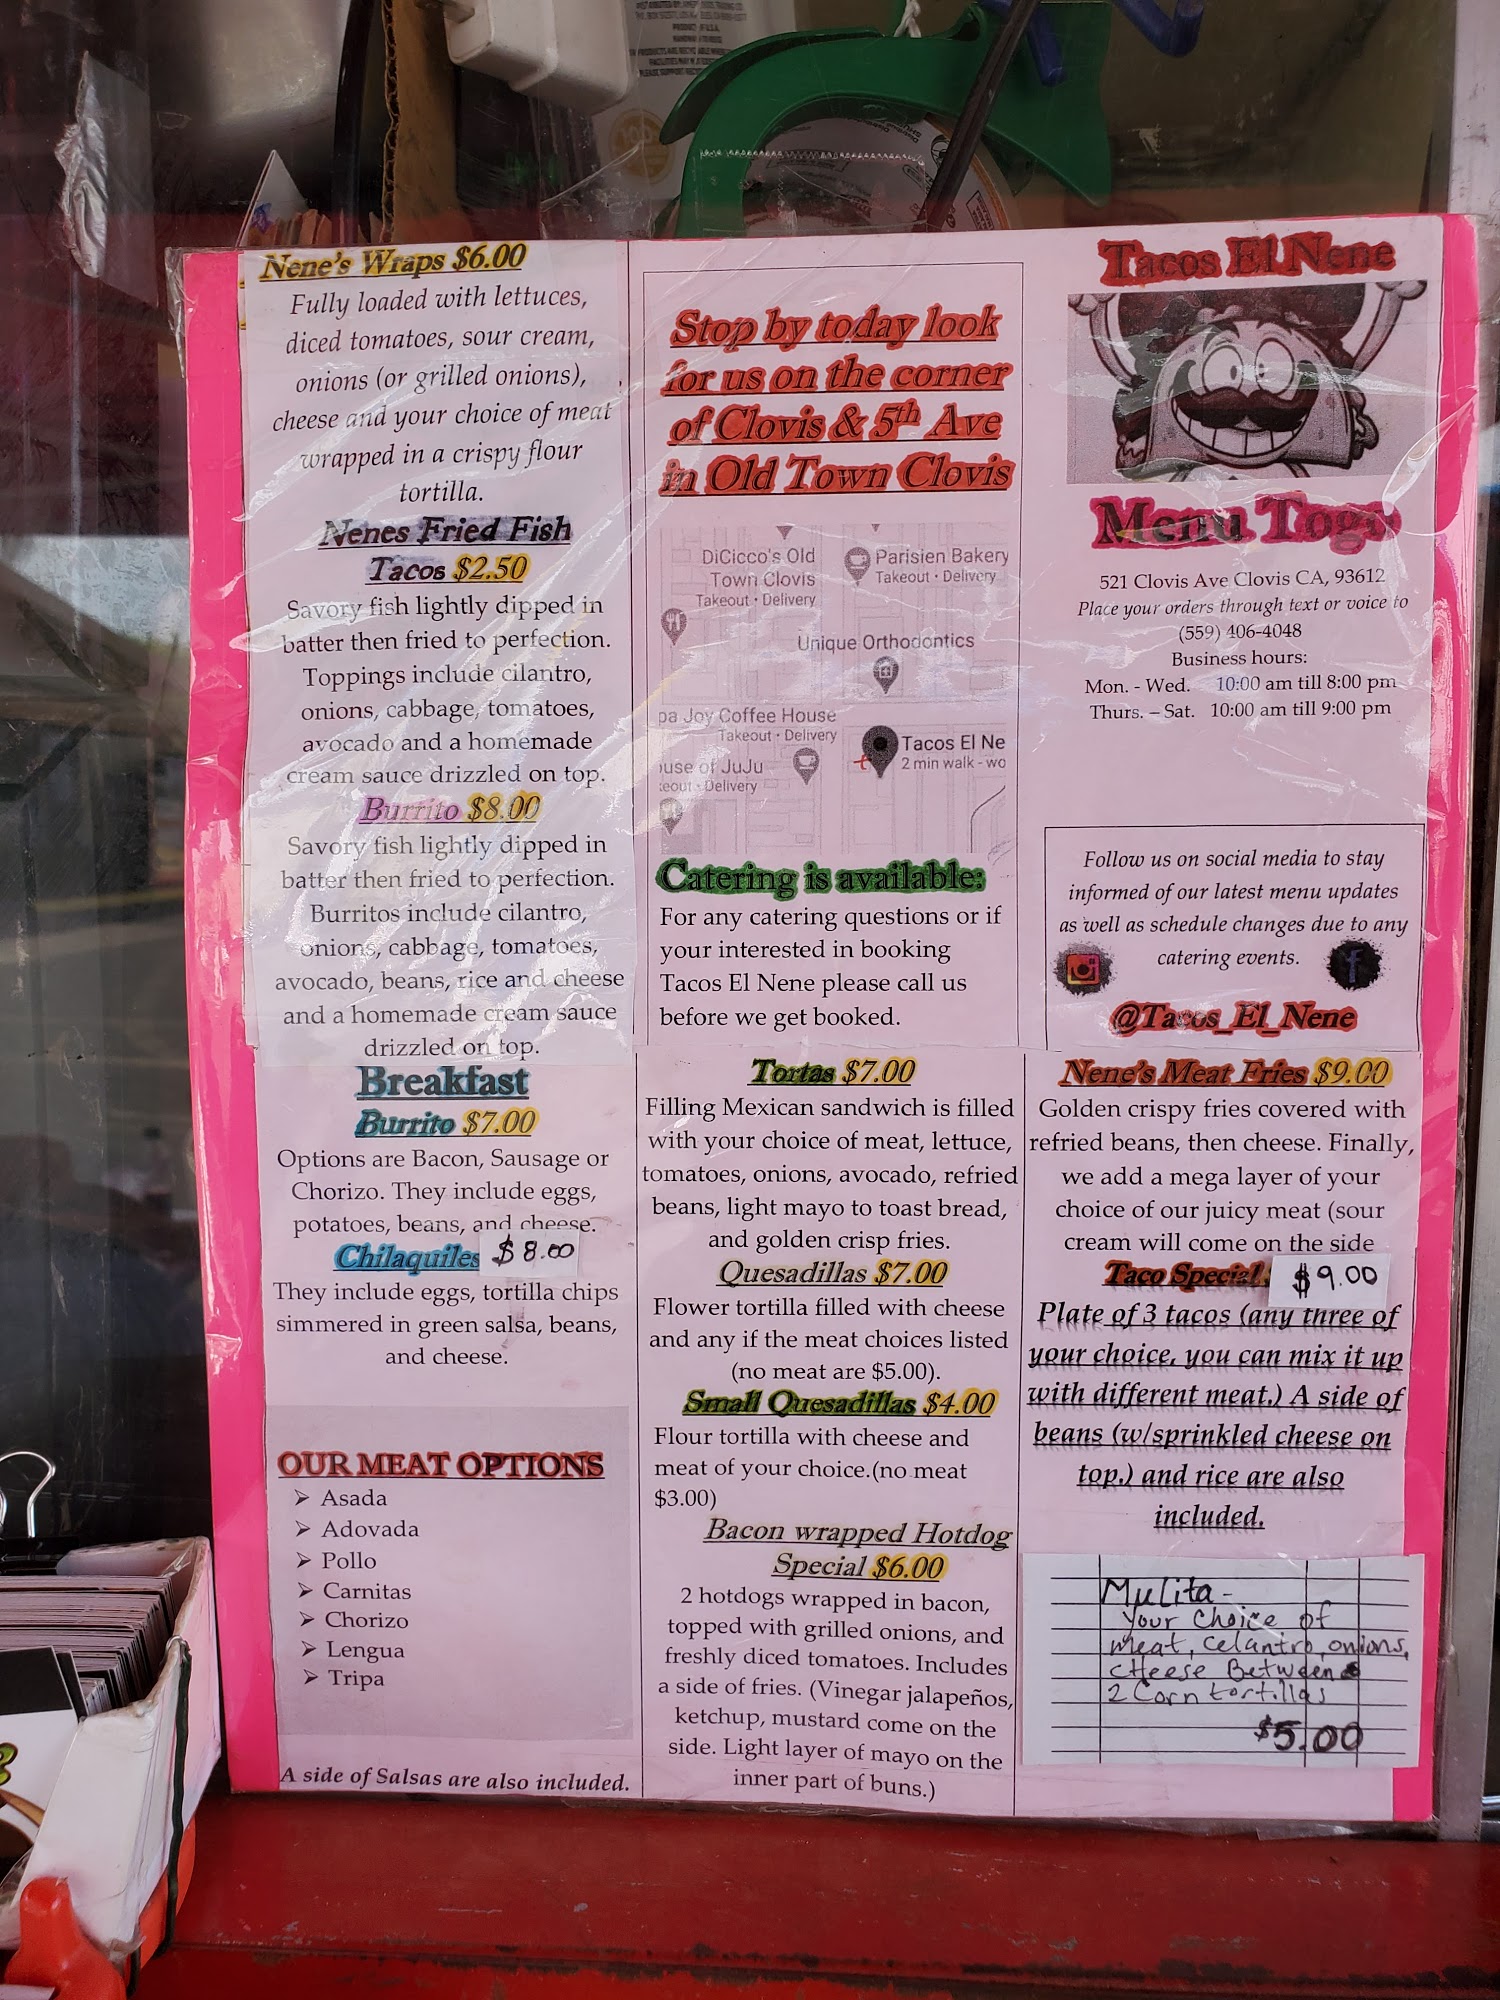 Nene's Wraps $6.00
Fully loaded with lettuces,
diced tomatoes, sour cream,
onions (or grilled onions),
cheese and your choice of meat
wrapped in a crispy flour
tortilla.
Nenes Fried Fish
Tacos $2.50
Savory fish lightly dipped in
batter then fried to perfection.
Toppings include cilantro,
onions, cabbage, tomatoes,
avocado and a homemade
cream sauce drizzled on top.
Burrito $8.00
Savory fish lightly dipped in
batter then fried to perfection.
Burritos include cilantro,
onions, cabbage, tomatoes,
avocado, beans, rice and cheese
and a homemade cream sauce
drizzled on top.
Breakfast
Burrito $7.00
Options are Bacon, Sausage or
Chorizo. They include eggs,
potatoes, beans, and cheese.
Chilaquiles $8.00
They include eggs, tortilla chips
simmered in green salsa, beans,
and cheese.
OUR MEAT OPTIONS
➢ Asada
➢ Adovada
➢ Pollo
➢ Carnitas
➢ Chorizo
➢ Lengua
➢ Tripa
A side of Salsas are also included.
Stop by today look
for us on the corner
of Clovis & 5th Ave
in Old Town Clovis
DiCicco's Old
Town Clovis
Takeout · Delivery
Parisien Bakery
Takeout · Delivery
Unique Orthodontics
pa Joy Coffee House
Takeout · Delivery
Tacos El Ne
2 min walk - wo
ouse of JuJu
keout · Delivery
Catering is available:
For any catering questions or if
your interested in booking
Tacos El Nene please call us
before we get booked.
Tortas $7.00
Filling Mexican sandwich is filled
with your choice of meat, lettuce,
tomatoes, onions, avocado, refried
beans, light mayo to toast bread,
and golden crisp fries.
Quesadillas $7.00
Flower tortilla filled with cheese
and any if the meat choices listed
(no meat are $5.00).
Small Quesadillas $4.00
Flour tortilla with cheese and
meat of your choice.(no meat
$3.00)
Bacon wrapped Hotdog
Special $6.00
2 hotdogs wrapped in bacon,
topped with grilled onions, and
freshly diced tomatoes. Includes
a side of fries. (Vinegar jalapeños,
ketchup, mustard come on the
side. Light layer of mayo on the
inner part of buns.)
Tacos El Nene
Menu Togo
521 Clovis Ave Clovis CA, 93612
Place your orders through text or voice to
(559) 406-4048
Business hours:
Mon. - Wed. 10:00 am till 8:00 pm
Thurs. – Sat. 10:00 am till 9:00 pm
Follow us on social media to stay
informed of our latest menu updates
as well as schedule changes due to any
catering events.
@Tacos_El_Nene
Nene's Meat Fries $9.00
Golden crispy fries covered with
refried beans, then cheese. Finally,
we add a mega layer of your
choice of our juicy meat (sour
cream will come on the side
Taco Special $9.00
Plate of 3 tacos (any three of
your choice, you can mix it up
with different meat.) A side of
beans (w/sprinkled cheese on
top.) and rice are also
included.
Mulita -
Your choice of
meat, celantro, onions,
cheese Between
2 Corn tortillas
$5.00